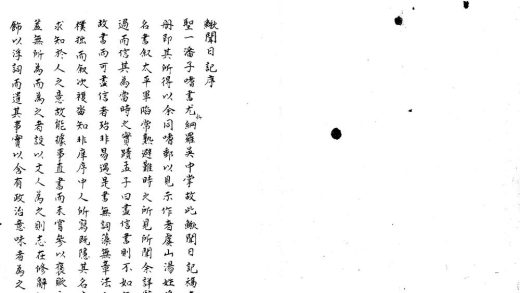 鰍聞日記序
聖一潘子嗜書尤網羅吳中掌故此鰍聞日記稿
冊即其所得以余同嗜郵以見示作者虞山湯姓
名書叙太平軍陷常熟避難時之所見所聞余詳
過而信其為當時之實蹟孟子曰盡信書則不如
故書而可盡信者殆非易遇是書無詞藻無章法
樸拙而叙次複沓知非庠序中人所寫既隱其名
求知於人之意故能據事直書而未嘗參以褒貶
蓋無所為而為之者設以文人為之則志在修辭
飾以浮詞而遺其事實以含有政治意味者為之